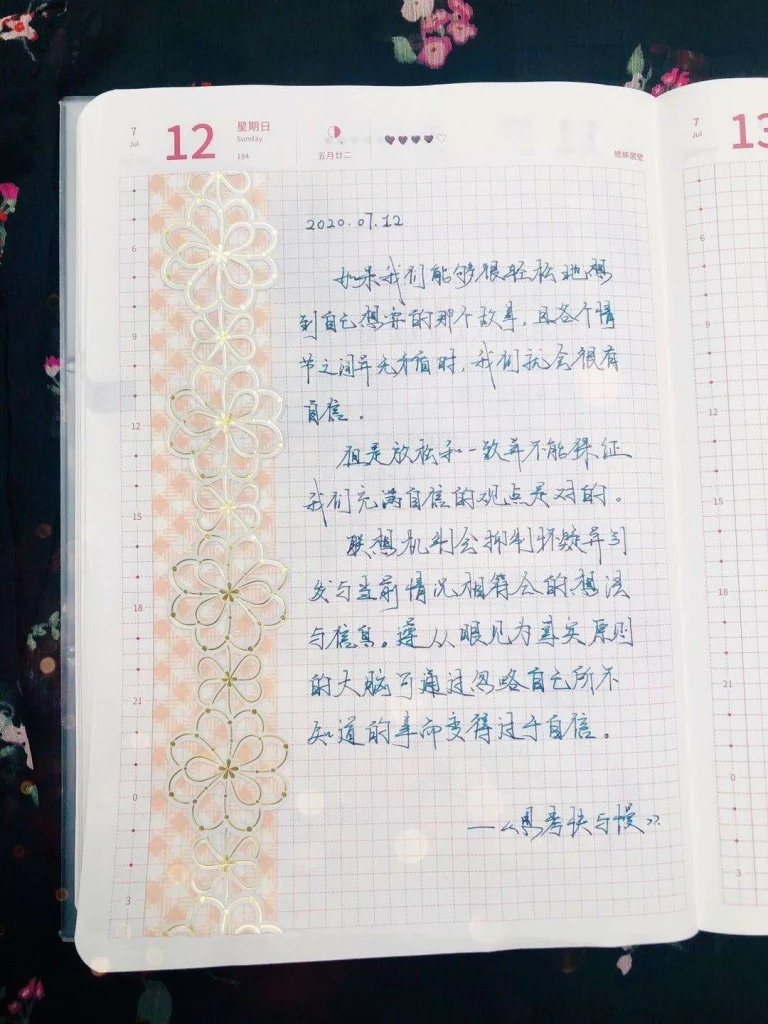 7
Jul
12
星期日
Sunday
194
五月廿二
蟋蟀居壁
7
Jul
13
2020.07.12
如果我们能够很轻松地想
到自己想要的那个故事，且各个情
节之间并无矛盾时，我们就会很有
自信。
但是放松和一致并不能保证
我们充满自信的观点是对的。
联想机制会抑制怀疑并引
发与当前情况相符合的想法
与信息。遵从眼见为真实原则
的大脑可通过忽略自己所不
知道的事而变得过于自信。
——《思考快与慢》
6
9
12
15
18
21
0
3
6
9
12
15
18
21
0
3